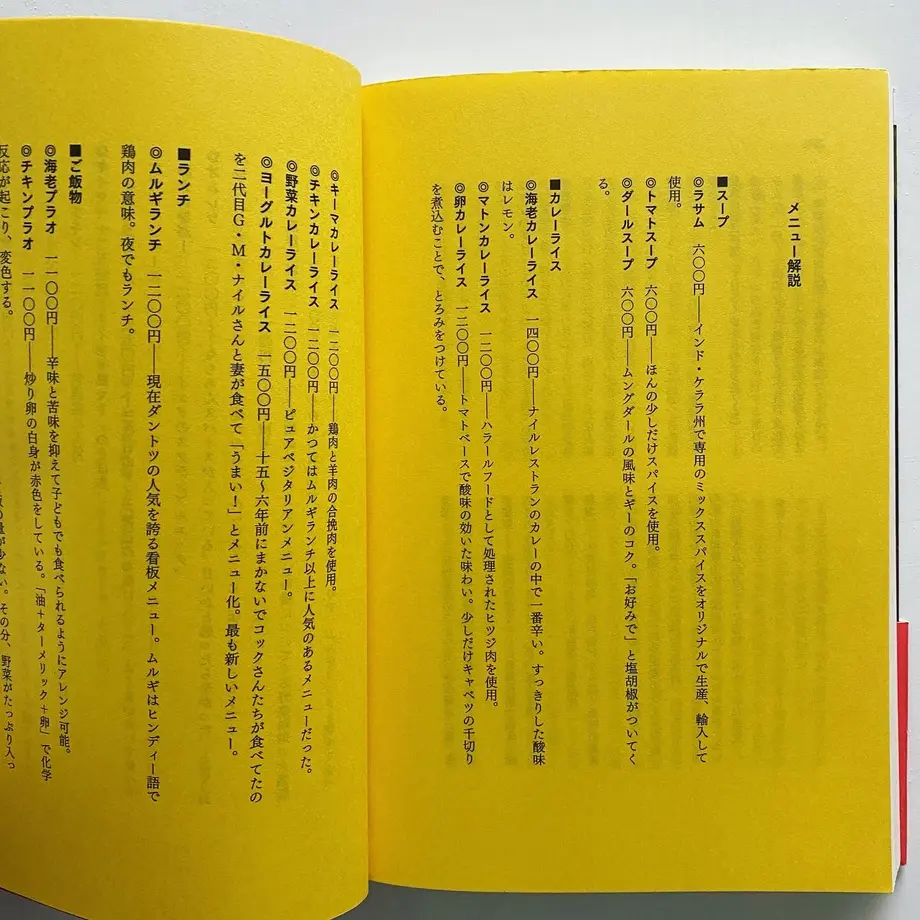 メニュー解説
■スープ
◎ラサム 六〇〇円――インド・ケララ州で専用のミックススパイスをオリジナルで生産、輸入して
使用。
◎トマトスープ 六〇〇円――ほんの少しだけスパイスを使用。
◎ダールスープ 六〇〇円――ムングダールの風味とギーのコク。「お好みで」と塩胡椒がついてく
る。
■カレーライス
◎海老カレーライス 一四〇〇円――ナイルレストランのカレーの中で一番辛い。すっきりした酸味
はレモン。
◎マトンカレーライス 一二〇〇円――ハラールフードとして処理されたヒツジ肉を使用。
◎卵カレーライス 一二〇〇円――トマトベースで酸味の効いた味わい。少しだけキャベツの千切り
を煮込むことで、とろみをつけている。
◎キーマカレーライス 一二〇〇円――鶏肉と羊肉の合挽肉を使用。
◎チキンカレーライス 一二〇〇円――かつてはムルギランチ以上に人気のあるメニューだった。
◎野菜カレーライス 一二〇〇円――ピュアベジタリアンメニュー。
◎ヨーグルトカレーライス 一五〇〇円――十五〜六年前にまかないでコックさんたちが食べてたの
を二代目G・M・ナイルさんと妻が食べて「うまい！」とメニュー化。最も新しいメニュー。
■ランチ
◎ムルギランチ 一二〇〇円――現在ダントツの人気を誇る看板メニュー。ムルギはヒンディー語で
鶏肉の意味。夜でもランチ。
■ご飯物
◎海老プラオ 一一〇〇円――辛味と苦味を抑えて子どもでも食べられるようにアレンジ可能。
◎チキンプラオ 一一〇〇円――炒り卵の白身が赤色をしている。「油＋ターメリック＋卵」で化学
反応が起こり、変色する。
量が少ない。その分、野菜がたっぷり入っ